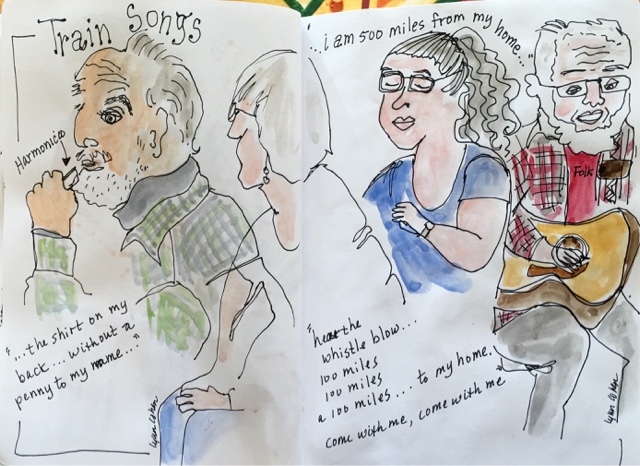 Train Songs
Harmonica
"...the shirt on my
back... without a
penny to my name..."
"...i am 500 miles from my home..."
Folk
"hear the
whistle blow...
100 miles
100 miles
a 100 miles... to my home.
come with me, come with me"